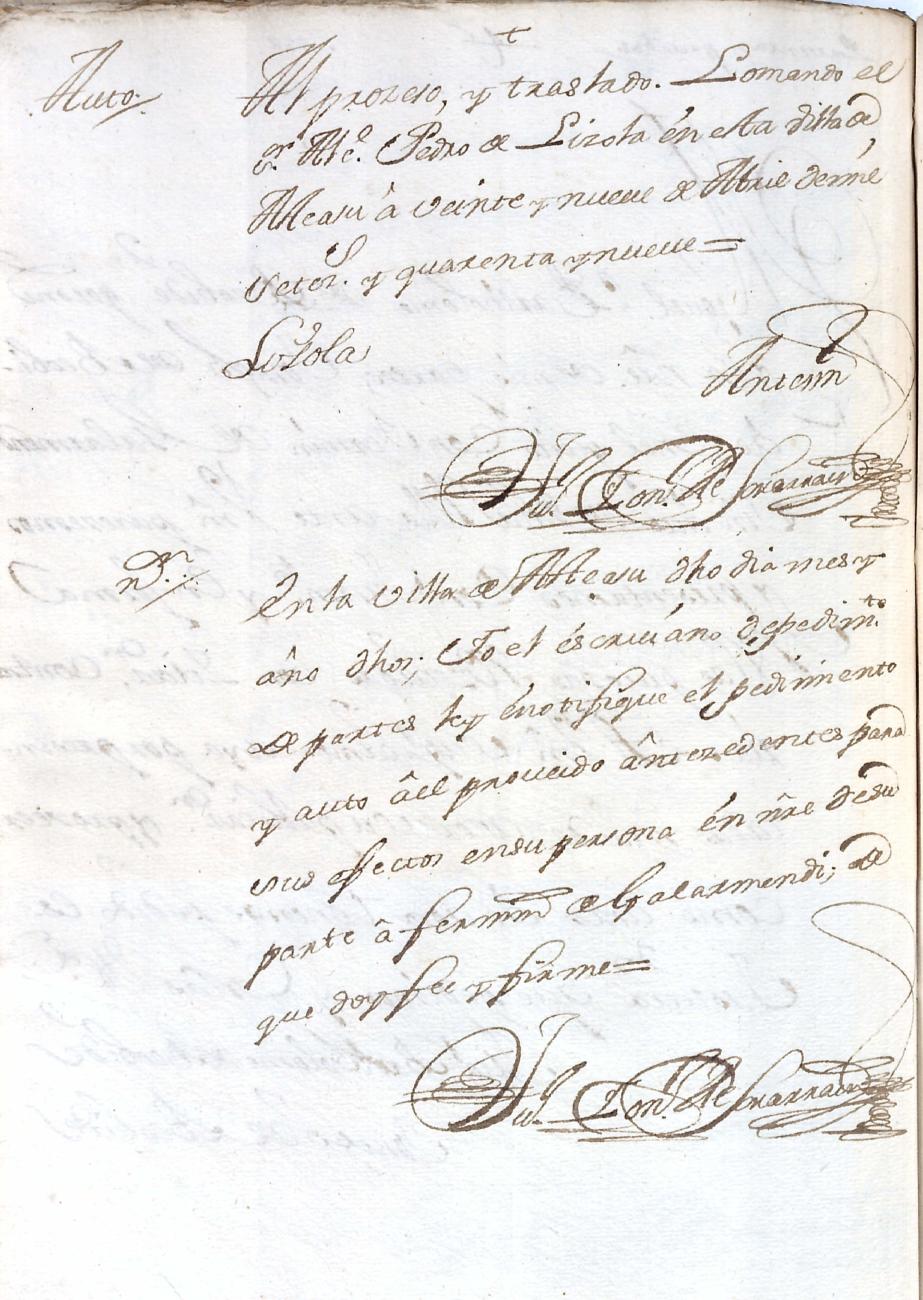 t
Auto.
Al prozeso, y traslado. Lo mando el
Sr. Alce. Pedro de Lizola én esta villa de
Alcasu â veinte y nueve de Abrie de mil
setezs. y quarenta y nueve =
Lizola
Antemi
Juln. Lon. de
non.
En la villa de Alcasu dho dia mes y
año dhos; Yo el éscrivano de pedimto.
de partes ley é notifique el pedimento
y auto âel proveido ântezedentes para
sus efectos en su persona én nre de su
parte â fermin de Galarmendi; de
que doy fee y firme =
Juln. Lon. de